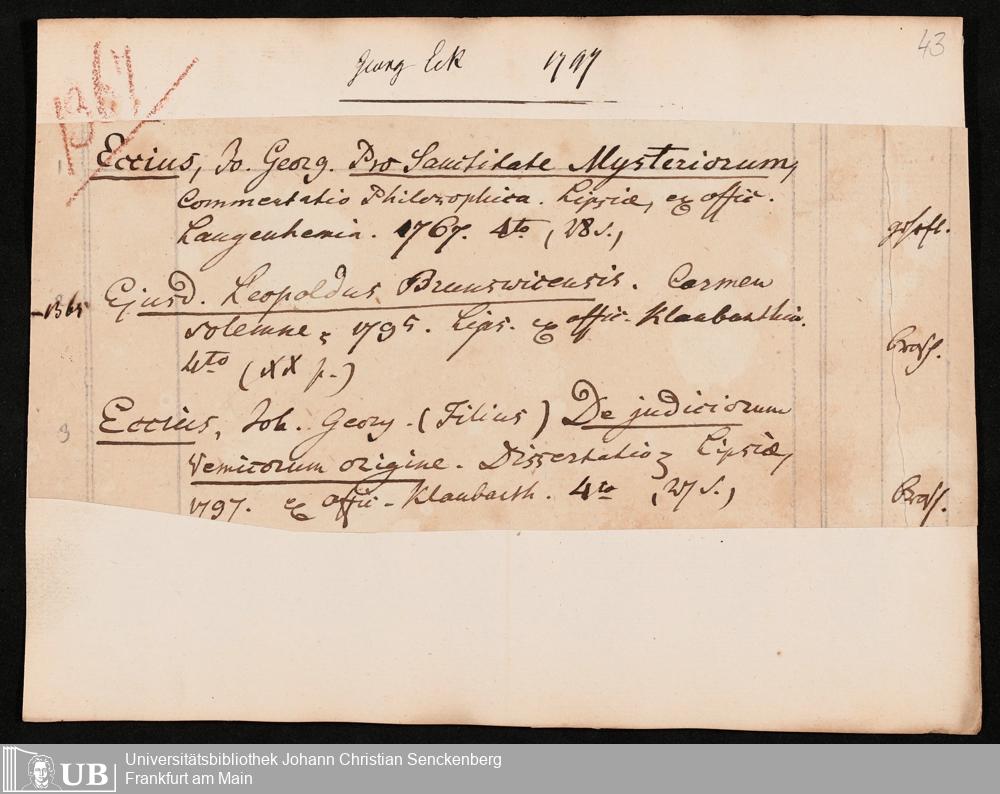 43
Georg Eck 1797
1367
Eccius, Jo. Georg. Pro Sanctitate Mysteriorum,
Commentatio Philosophica. Lipsiæ, ex offic.
Langenhemia. 1767. 4to (28 S.)
Ejusd. Leopoldus Brunswicensis. Carmen
1365
solemne, 1795. Lips. ex offic. Klaubarthia.
4to (XX p.)
Brosch.
3
Eccius, Joh. Georg. (Filius) De judiciorum
Vemicorum origine. Dissertatio, Lipsiæ,
1797. ex offic. Klaubarth. 4to (27 S.)
Brosch.
UB
Universitätsbibliothek Johann Christian Senckenberg
Frankfurt am Main